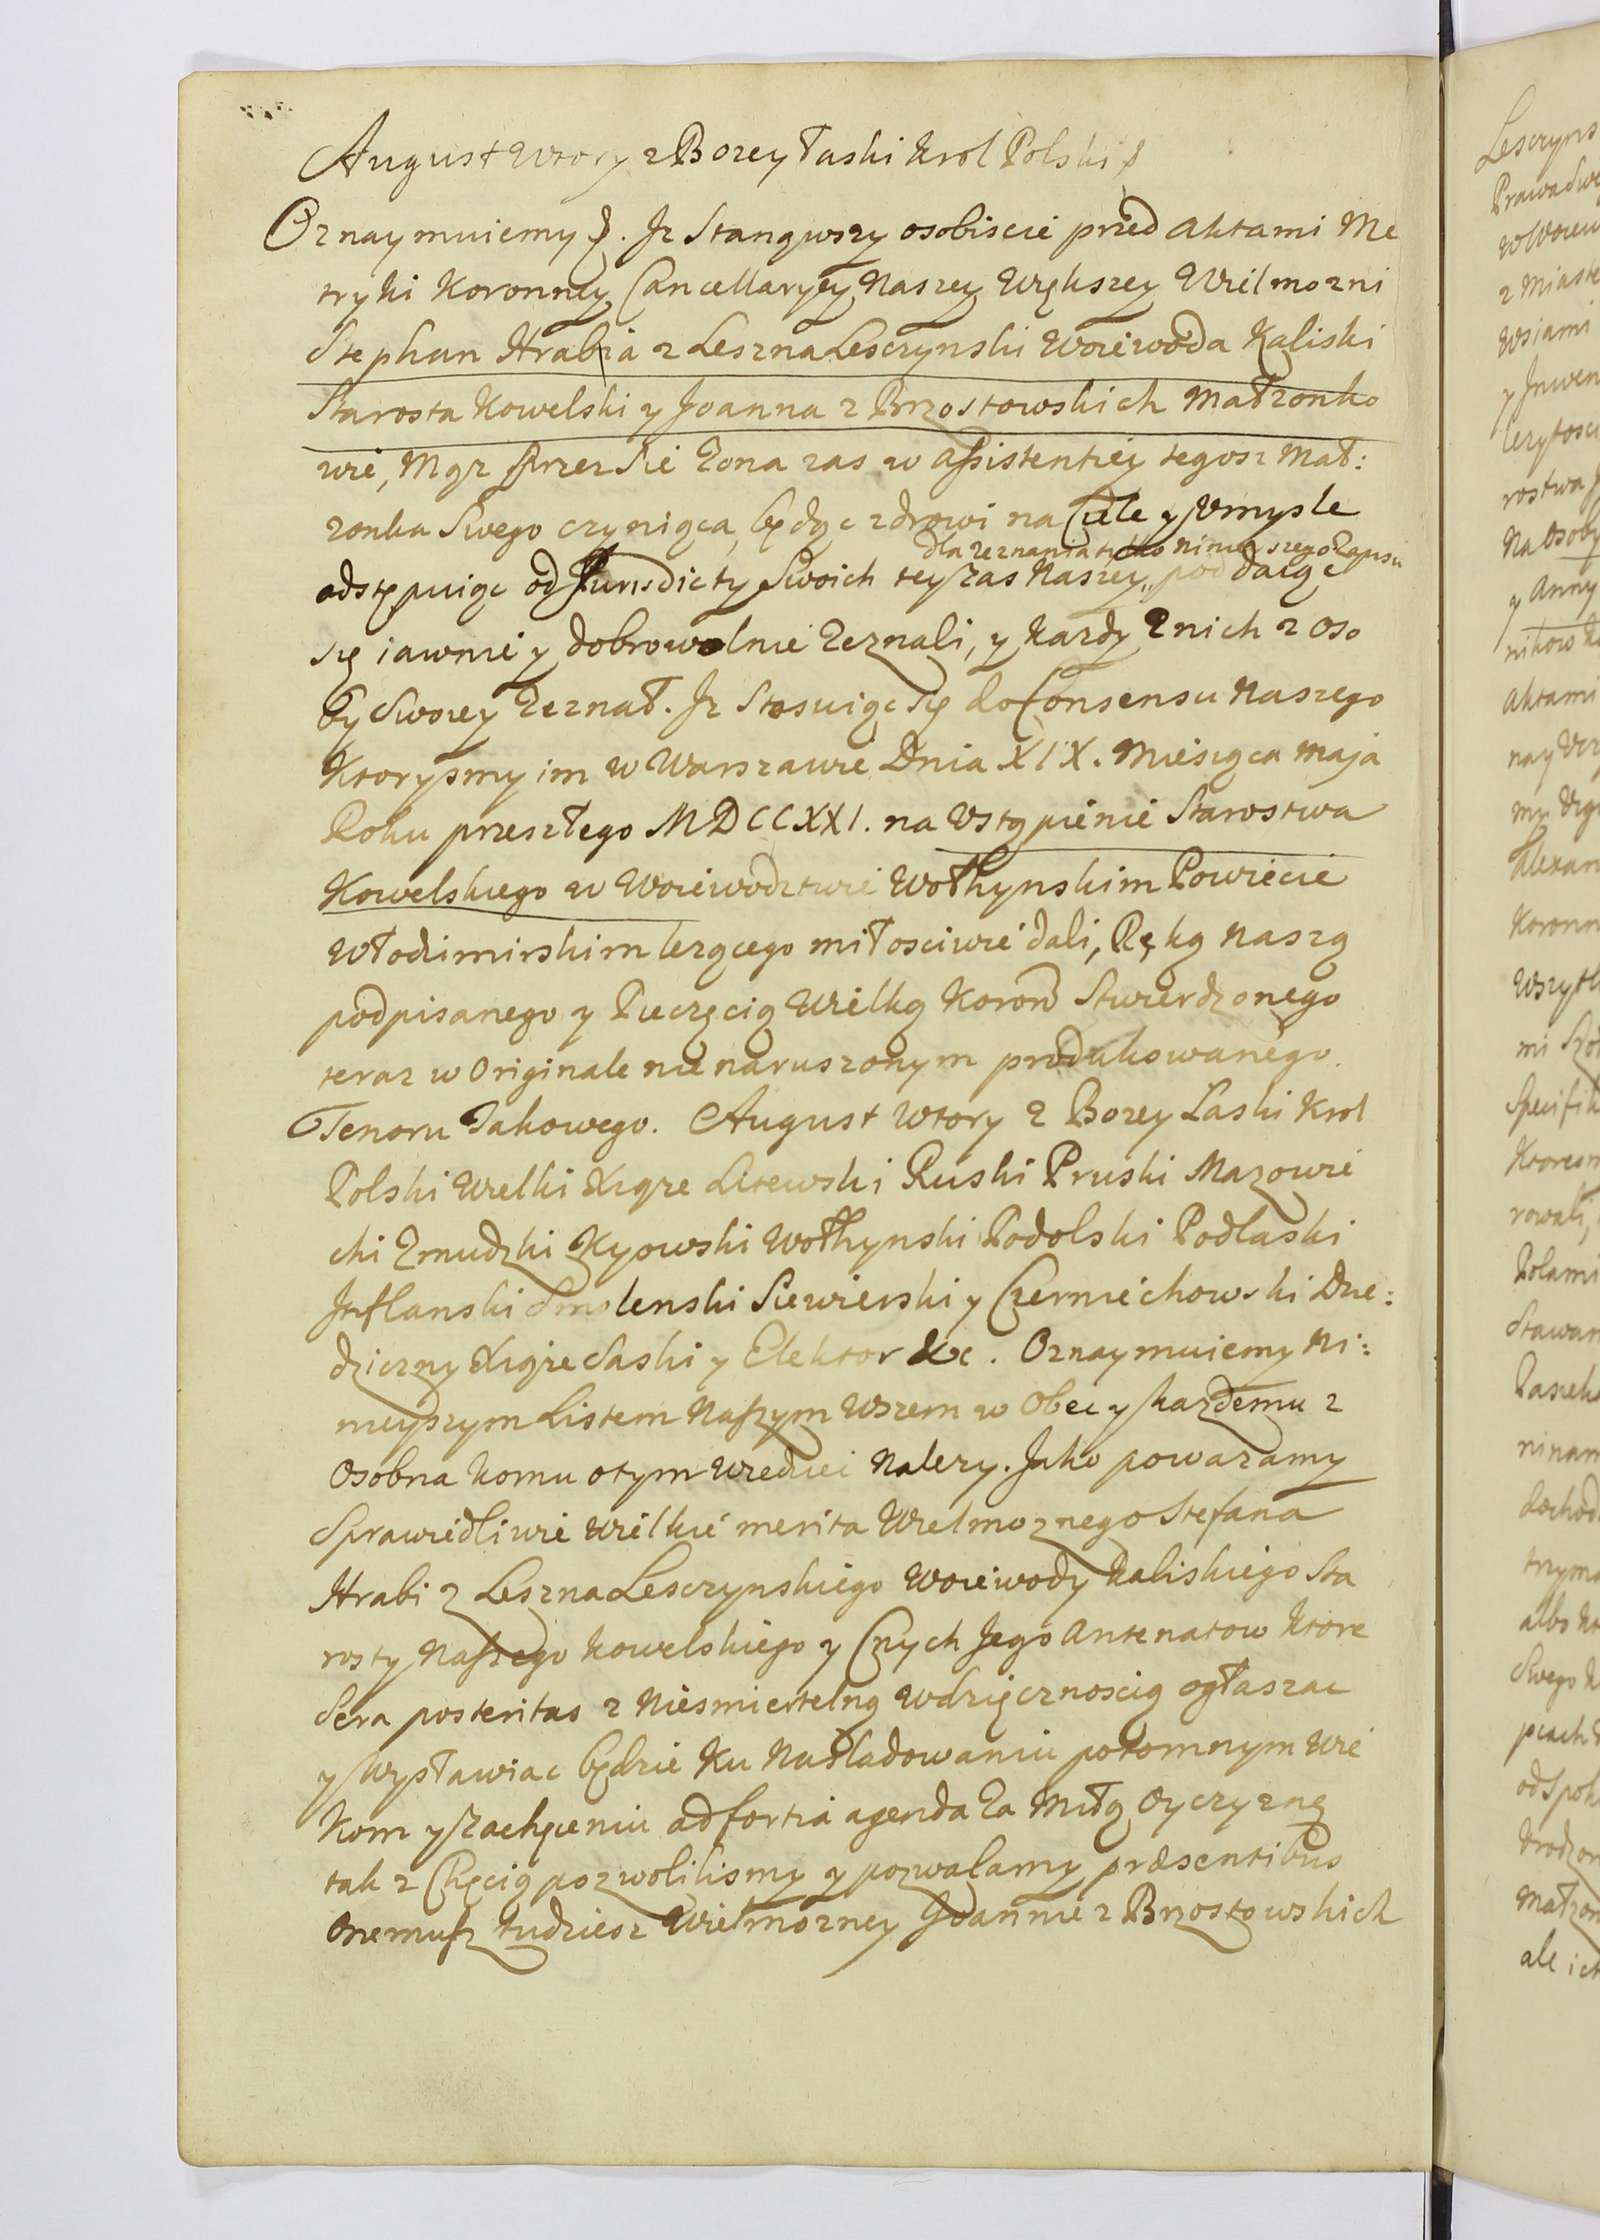 August wtory z Bozey Łaski Krol Polski &
Oznaymuiemy &. Jz Stanąwszy osobiscie przed Aktami Me
tryki Koronney Cancellaryey Naszey Większey Wielmozni
Stephan Hrabia z Leszna Lesczynski Woiewoda Kaliski
Starosta Kowelski y Joanna z Brzostowskich Małzonko
wie, Mąz przez Sie Zona zas w assistentiey tegosz Mał:
zonka Swego czyniąca, będąc zdrowi na Ciele y Vmysle
dla zeznania tylko ninieyszego Zapisu
odstępuiąc od Jurisdicty Swoich tey zas Naszey poddaiąc
się iawnie y dobrowolnie Zeznali, y Kazdy Znich z oso
by Swoiey Zeznał. Jz Stosuiąc się do Consensu Naszego
Ktorysmy im w Warszawie Dnia XIX. Miesiąca Maja
Roku przeszłego MDCCXXI. na Vstąpienie Starostwa
Kowelskiego w Woiewodztwie Wołhynskim Powiecie
Włodimirskim lezącego miłosciwie dali, Ręką Naszą
podpisanego y Pieczęcią Wielką Koron Stwierdzonego
teraz w Originale nienaruszonym produkowanego.
Tenoru Takowego. August wtory z Bozey Laski Krol
Polski Wielki Xiąze Litewski Ruski Pruski Mazowie
cki Zmudzki Kyowski Wołhynski Podolski Podlaski
Jnflanski Smolenski Siewierski y Czerniechowski Dzie:
dziczny Xiąze Saski y Elektor &c. Oznaymuiemy Ni:
nieyszym Listem Naszym Wszem w Obec y kazdemu z
Osobna komu o tym wiedziec Nalezy. Jako powazamy
Sprawiedliwie wielkie merita Wielmoznego Stefana
Hrabi z Leszna Lesczynskiego Woiewody Kaliskiego Sta
rosty Naszego Kowelskiego y Cnych Jego Antenatow Ktore
Sera posteritas z Niesmiertelną wdzięcznoscią ogłaszac
y Wysławiac będzie Ku Nasladowaniu potomnym Wie
Kom y Zachęceniu ad fortia agenda Za Miłą Oyczyznę
tak z Chęcią pozwolilismy y pozwalamy præsentibus
Onemusz tudziesz Wielmozney Joannie z Brzostowskich